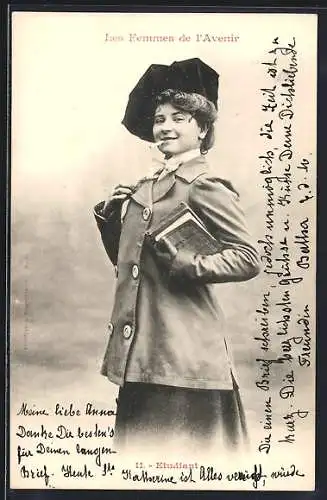 Les Femmes de l'Avenir
11. - Etudiant
Meine liebe Anna
Danke Dir besten's
für Deinen langen
Brief. Heute St.
Katharine ist Alles verreist, würde
Dir einen Brief schreiben, jedoch unmöglich, die Zeit ist zu
kurz. Die herzlichsten Grüsse u. Küsse Deine Dichliebende
Freundin Bertha